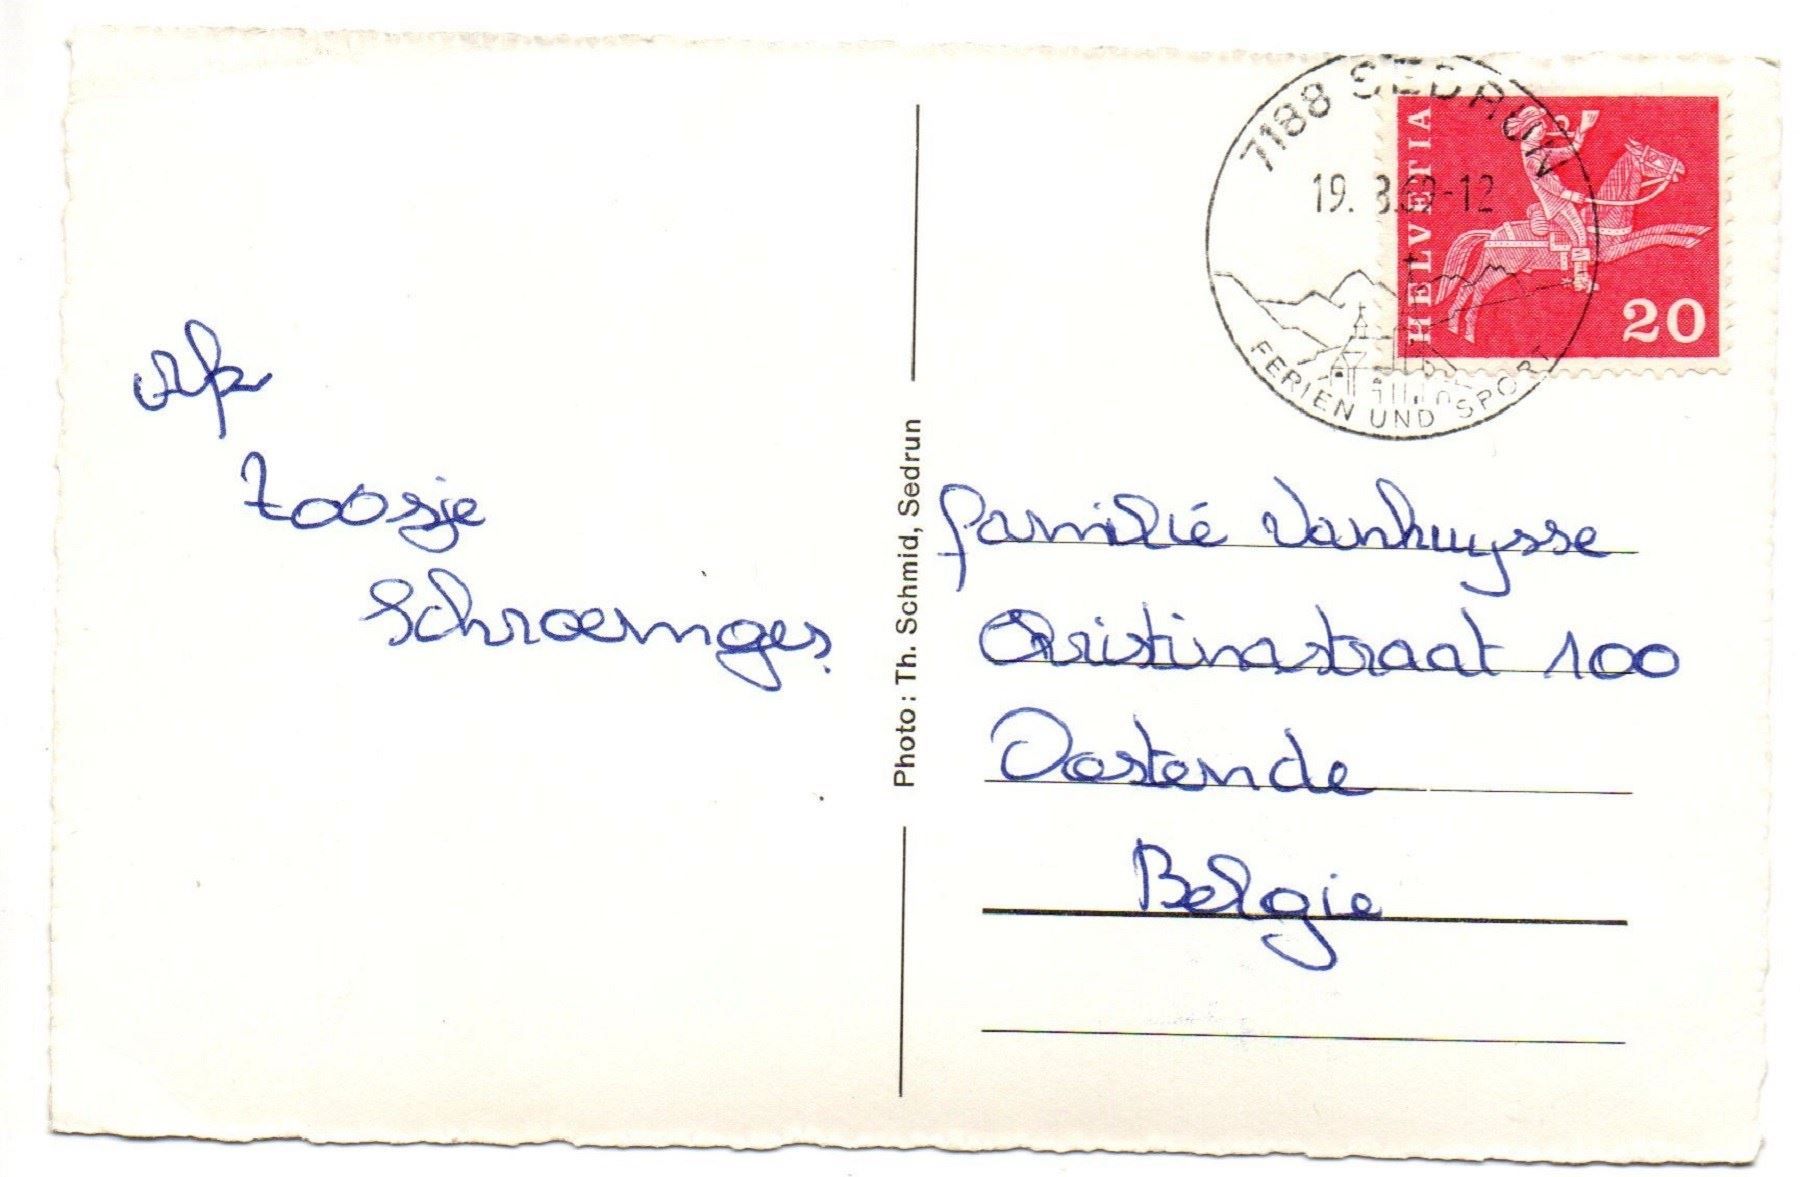 Afz
Zoosje
Schroeninges.
Photo: Th. Schmid, Sedrun
7188 SEDRUN
19. 8.69-12
FERIEN UND SPORT
HELVETIA
20
familie Vanhuysse
Christinastraat 100
Oostende
Belgie